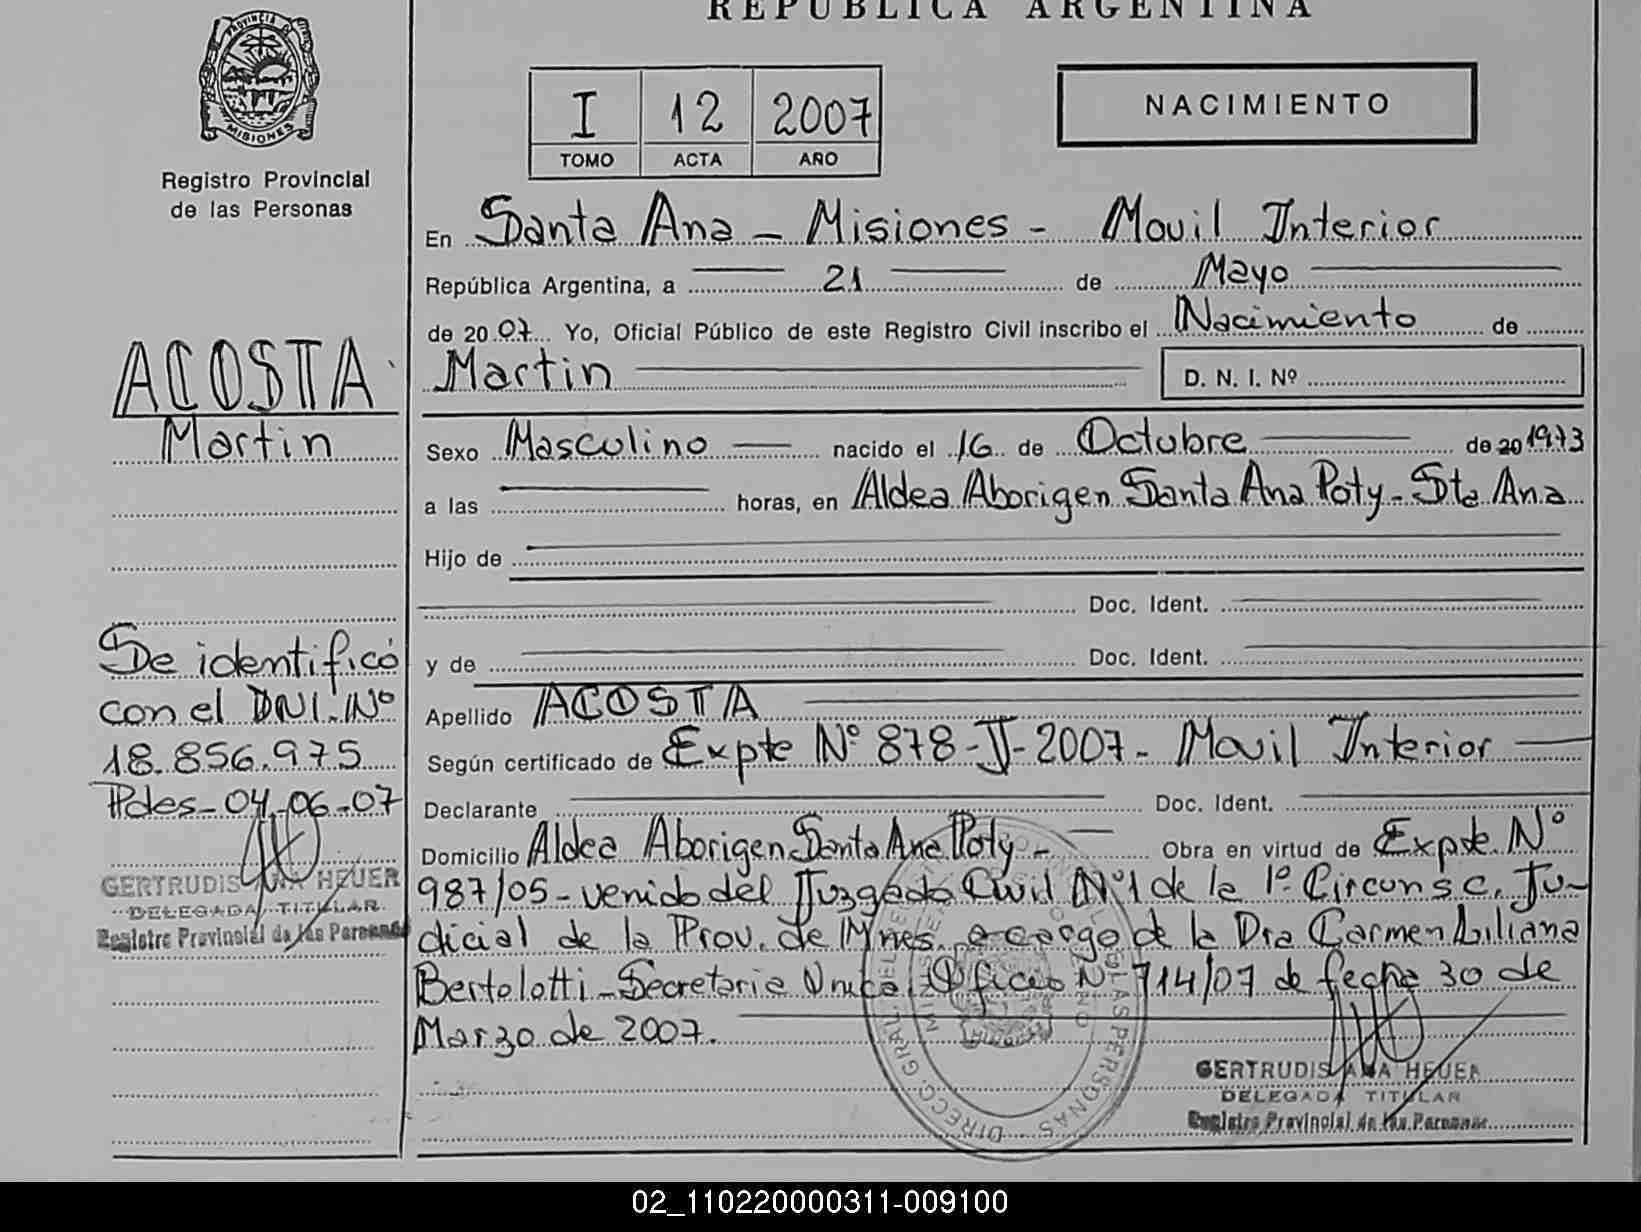 REPUBLICA ARGENTINA
PROVINCIA DE
MISIONES
Registro Provincial
de las Personas
I 12 2007
TOMO ACTA AÑO
NACIMIENTO
En Santa Ana - Misiones - Movil Interior
República Argentina, a 21 de Mayo
de 2007 Yo, Oficial Público de este Registro Civil inscribo el Nacimiento de
Martin D. N. I. Nº
ACOSTA
Martin
Sexo Masculino nacido el 16 de Octubre de 20 1973
a las horas, en Aldea Aborigen Santa Ana Poty - Sta Ana
Hijo de
Doc. Ident.
y de Doc. Ident.
Apellido ACOSTA
Según certificado de Expte Nº 878-J-2007- Movil Interior
Declarante Doc. Ident.
Domicilio Aldea Aborigen Santa Ana Poty - Obra en virtud de Expte Nº
987/05 - venido del Juzgado Civil Nº1 de la 1º Circunsc. Ju-
dicial de la Prov. de Mnes. a cargo de la Dra Carmen Liliana
Bertolotti - Secretaria Unica Oficio Nº 714/07 de fecha 30 de
Marzo de 2007.
Se identificó
con el DNI. Nº
18.856.975
Pdes - 04-06-07
GERTRUDIS ANA HEUER
DELEGADA TITULAR
Registro Provincial de las Personas
GERTRUDIS ANA HEUER
DELEGADA TITULAR
Registro Provincial de las Personas
02_110220000311-009100